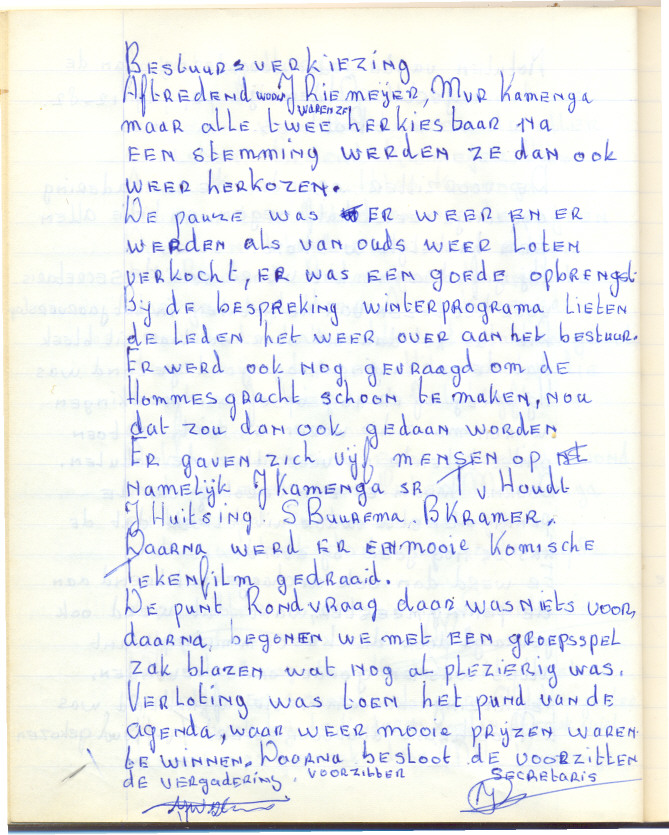 Bestuursverkiezing
Aftredend waren J Riemeijer, Mvr Kamenga
maar alle twee waren ze herkiesbaar na
een stemming werden ze dan ook
weer herkozen.
De pauze was er weer en er
werden als van ouds weer loten
verkocht, er was een goede opbrengst.
Bij de bespreking winterprograma lieten
de leden het weer over aan het bestuur.
Er werd ook nog gevraagd om de
Hommesgracht schoon te maken, nou
dat zou dan ook gedaan worden
Er gaven zich vijf mensen op
namelijk J Kamenga sr T v Houdt
J Huitsing. S Buurema. B Kramer.
Daarna werd er een mooie komische
tekenfilm gedraaid.
De punt Rondvraag daar was niets voor,
daarna begonen we met een groepsspel
zak blazen wat nog al plezierig was.
Verloting was toen het punt van de
agenda, waar weer mooie prijzen waren
te winnen. Daarna besloot de voorzitten
de vergadering. voorzitter secretaris